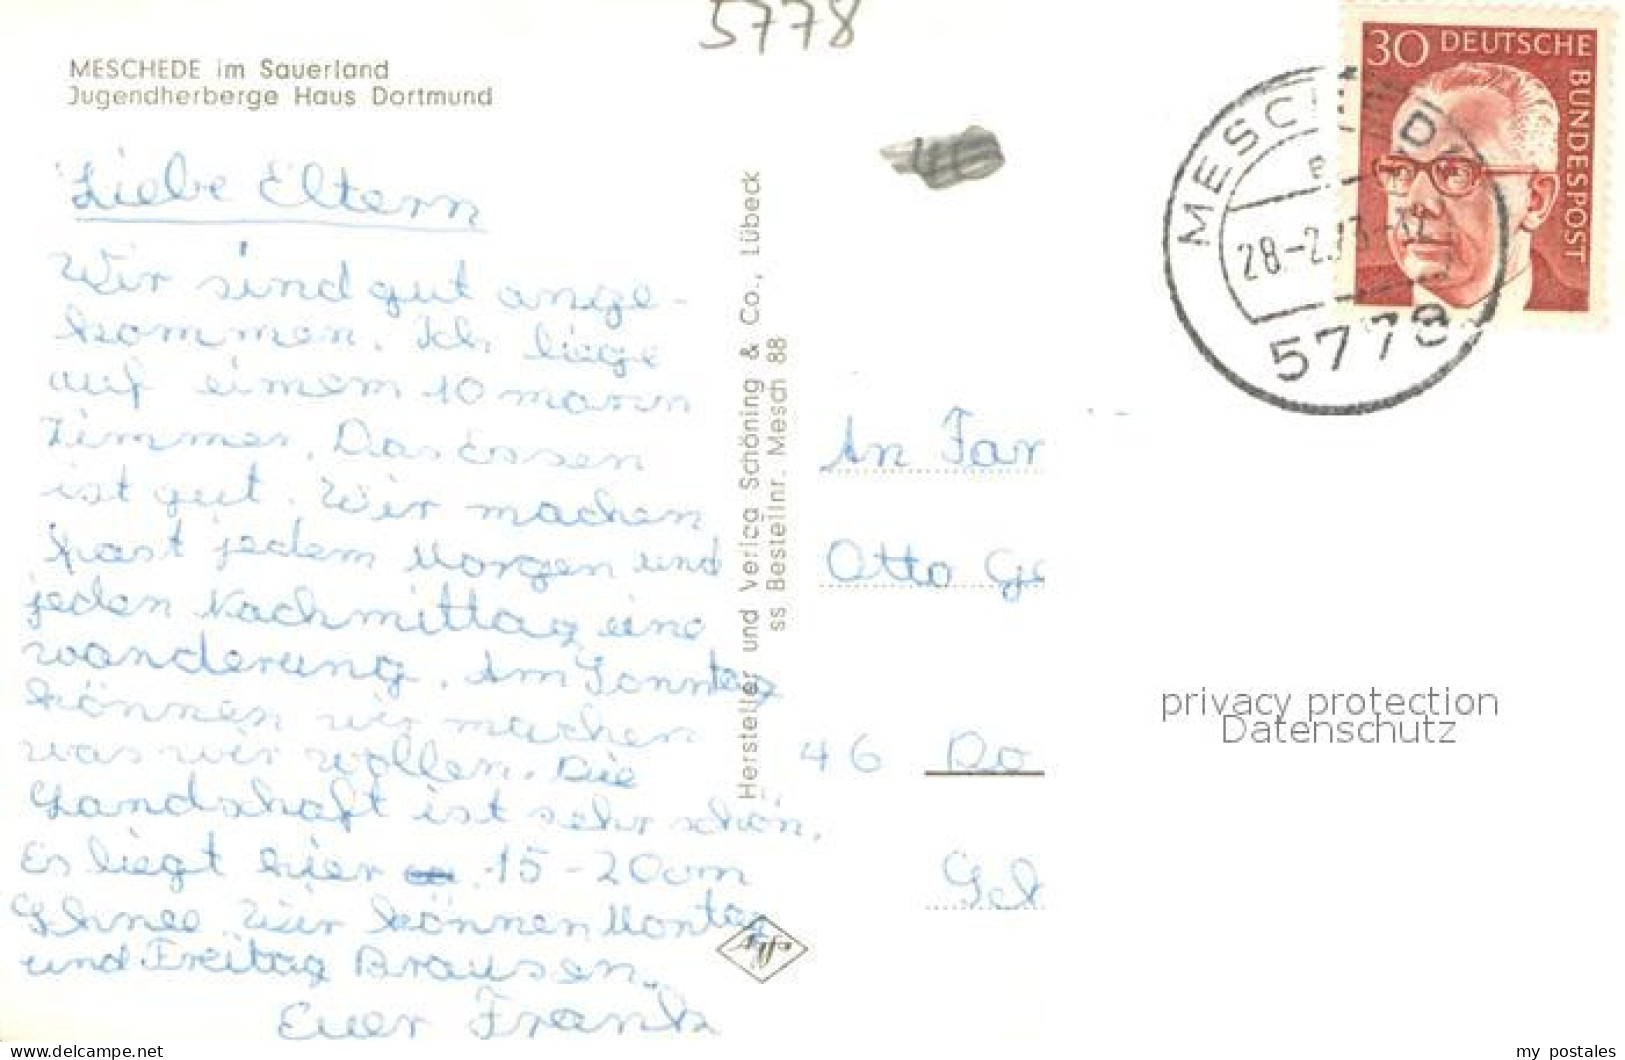 5778
MESCHEDE im Sauerland
Jugendherberge Haus Dortmund
Liebe Eltern
Wir sind gut ange-
kommen. Ich liege
auf einem 10 mann
Zimmer. Das Essen
ist gut. Wir machen
fast jedem Morgen und
jeden Nachmittag eine
wanderung. Am Sonntag
können wir machen
was wir wollen. Die
Landschaft ist sehr schön.
Es liegt hier 15-20cm
Schnee. Wir können Montag
und Freitag Brausen.
Euer Frank
Hersteller und Verlag Schöning & Co., Lübeck
ss Bestellnr. Mesch 88
46
30 DEUTSCHE
BUNDESPOST
MESCHEDE
28-2.73
5778
An Fam
Otto Ge
46 Do
privacy protection
Datenschutz
www.delcampe.net
my_postales